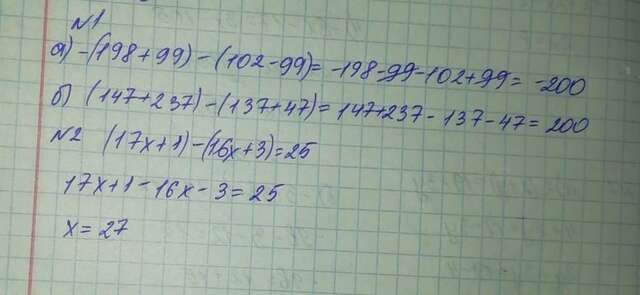 №1
а) -(198+99)-(102-99)=-198-99-102+99=-200
б) (147+237)-(137+47)=147+237-137-47=200
№2 (17x+1)-(16x+3)=25
17x+1-16x-3=25
x=27